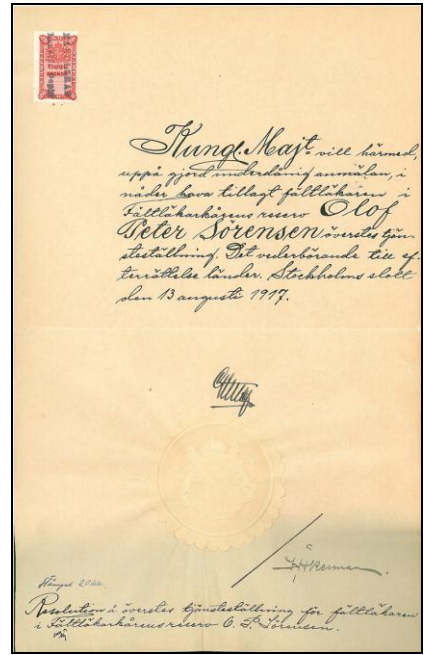 Kungl. Maj:t vill härmed,
uppå gjord underdånig anmälan, i
nåder hava tillagt fältläkaren i
Fältläkarkårens reserv Olof
Peter Sörensen överstes tjän-
steställning. Det vederbörande till ef-
terrättelse länder. Stockholms slott
den 13 augusti 1917.
Gustaf
J. Åkerman.
Stämpel 20 kr.
Resolution å överstes tjänsteställning för fältläkaren
i Fältläkarkårens reserv O. P. Sörensen.